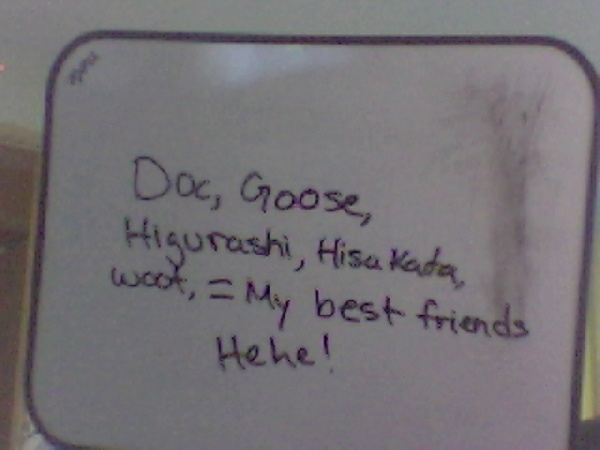 Doc, Goose,
Higurashi, Hisakata,
woot, = My best friends
Hehe!